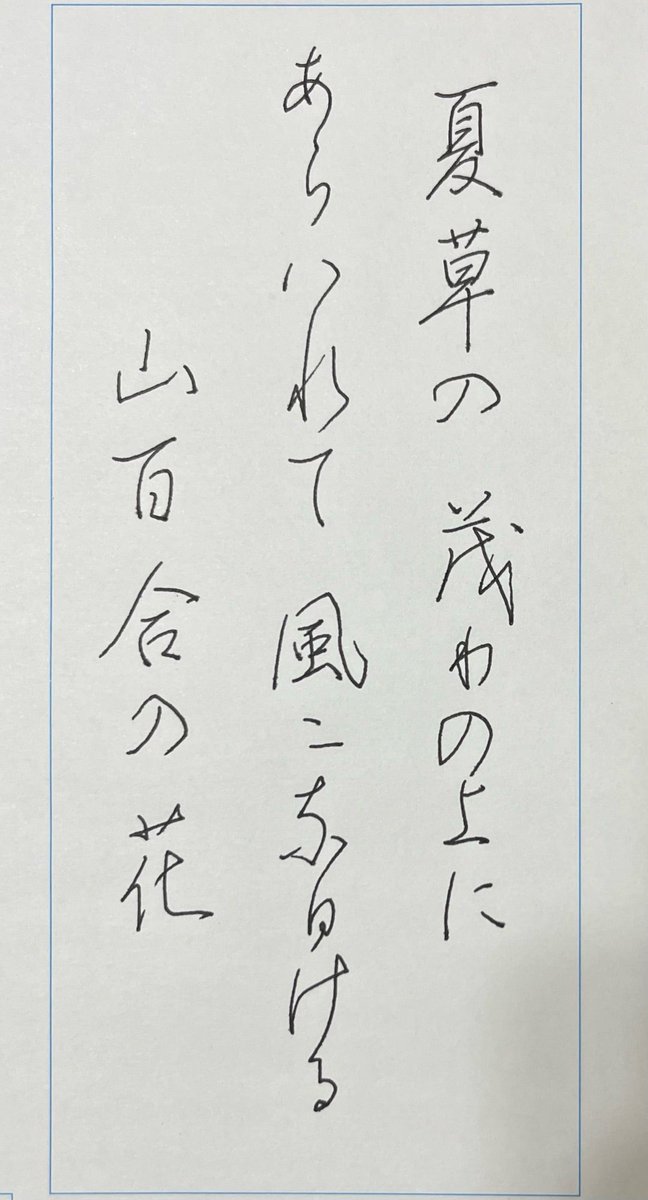 夏草の 茂りの上に
あらハれて 風ニなひける
山百合の花